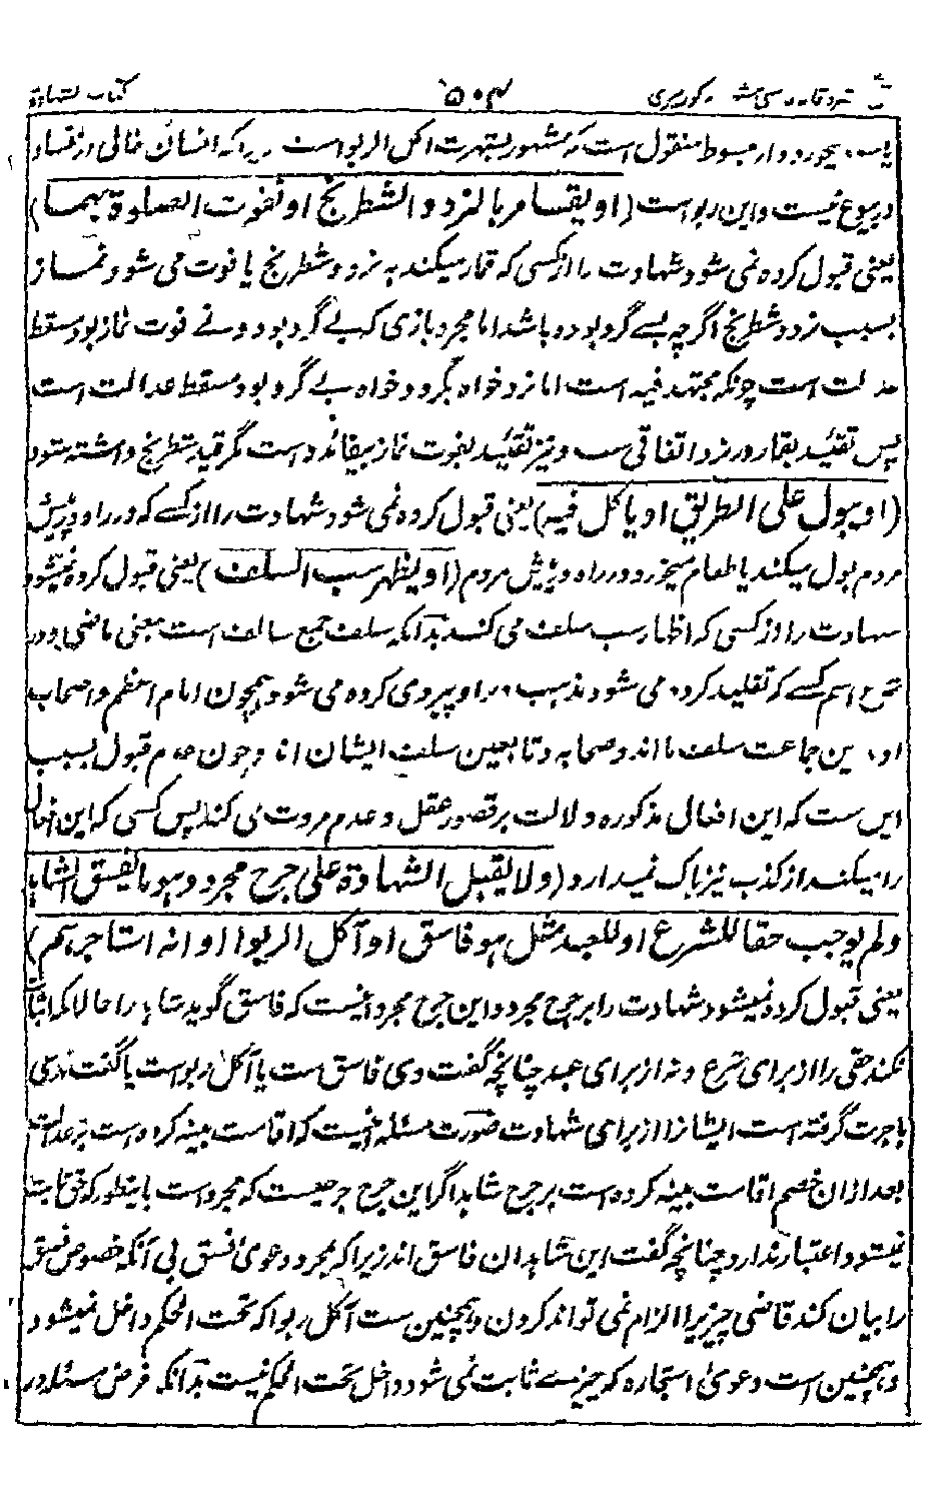 ۵۰۴ کتاب الشهادة
میخورد و در مبسوط منقول است که مشهور بشهرت اکل الربو است زیرا که انسان خالی از فساد
در بیوع نیست و این ربو است (او یقامر بالنرد و الشطرنج او تفوت الصلوة بهما)
یعنی قبول کرده نمی شود شهادت را از کسی که قمار میکند به نرد و شطرنج یا فوت می شود نماز
بسبب نرد و شطرنج اگرچه بے گرو بوده باشد اما مجرد بازی که بے گرو بود و نے فوت نماز بود مسقط
عدالت است چونکه مجتهد فیه است اما نرد خواه بگرو و خواه بے گرو بود مسقط عدالت است
پس تقئید بقمار در نرد اتفاقی ست و نیز تقئید بفوت نماز بیفائده است مگر قید شطرنج داشته شود
(او یبول علی الطریق او یاکل فیه) یعنی قبول کرده نمی شود شهادت را از کسے که در راه و پیش
مردم بول میکند یا طعام میخورد در راه و پیش مردم (او یظهر سب السلف) یعنی قبول کرده نمیشود
شهادت را از کسی که اظهار سب سلف می کند بدآنکه سلف جمع سالف است بمعنی ماضی و در
شرع اسم کسے که تقلید کرده می شود مذهب او را و پیروی کرده می شود همچون امام اعظم و اصحاب
او این جماعت سلف ما اند و صحابه و تابعین سلف ایشان اند وجون عدم قبول بسبب
این ست که این افعال مذکوره دلالت بر قصور عقل و عدم مروت می کند پس کسی که این افعال
را میکند از کذب نیز باک نمیدارد (ولا یقبل الشهادة علی جرح مجرد وهو ما یفسق الشاهد
ولم یوجب حقا للشرع او للعبد مثل هو فاسق او آکل الربوا او انه استاجرهم)
یعنی قبول کرده نمیشود شهادت را بر جرح مجرد و این جرح مجرد آنیست که فاسق گوید شاهد را حالانکه اثبات
نکند حقی را از برای شرع و نه از برای عبد چنانچه گفت وی فاسق ست یا آکل ربو است یا گفت مدعی
باجرت گرفته است ایشانرا از برای شهادت صورت مسئله آنیست که اقامت بینه کرده است بر عدالت
بعد ازان خصم اقامت بینه کرده است بر جرح شاهد اگر این جرح جرحیست که مجرد است باینطور که حق ثابت
نمیشود اعتبار ندارد چنانچه گفت این شاهدان فاسق اند زیرا که مجرد دعوئ فسق بی آنکه خصوص فسق
را بیان کند قاضی چیزیرا الزام نمی تواند کردن و همچنین ست آکل ربوا که تحت الحکم داخل نمیشود
و همچنین است دعوئ استجاره که چیزے ثابت نمی شود داخل تحت الحکم نیست بدآنکه فرض مسئله در